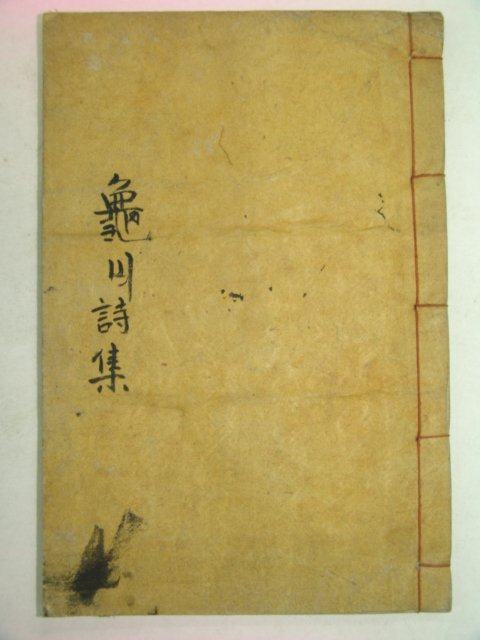 龜川詩集